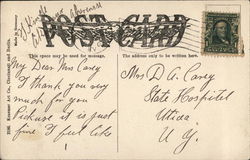 POST CARD
This space may be used for message.
The address only to be written here.
My Dear Mrs Carey
I thank you very
much for you
Picture it is just
fine I feel like
Mrs D A. Carey
State Hospital
Utica
N Y.
Kraemer Art Co., Cincinnati and Berlin.